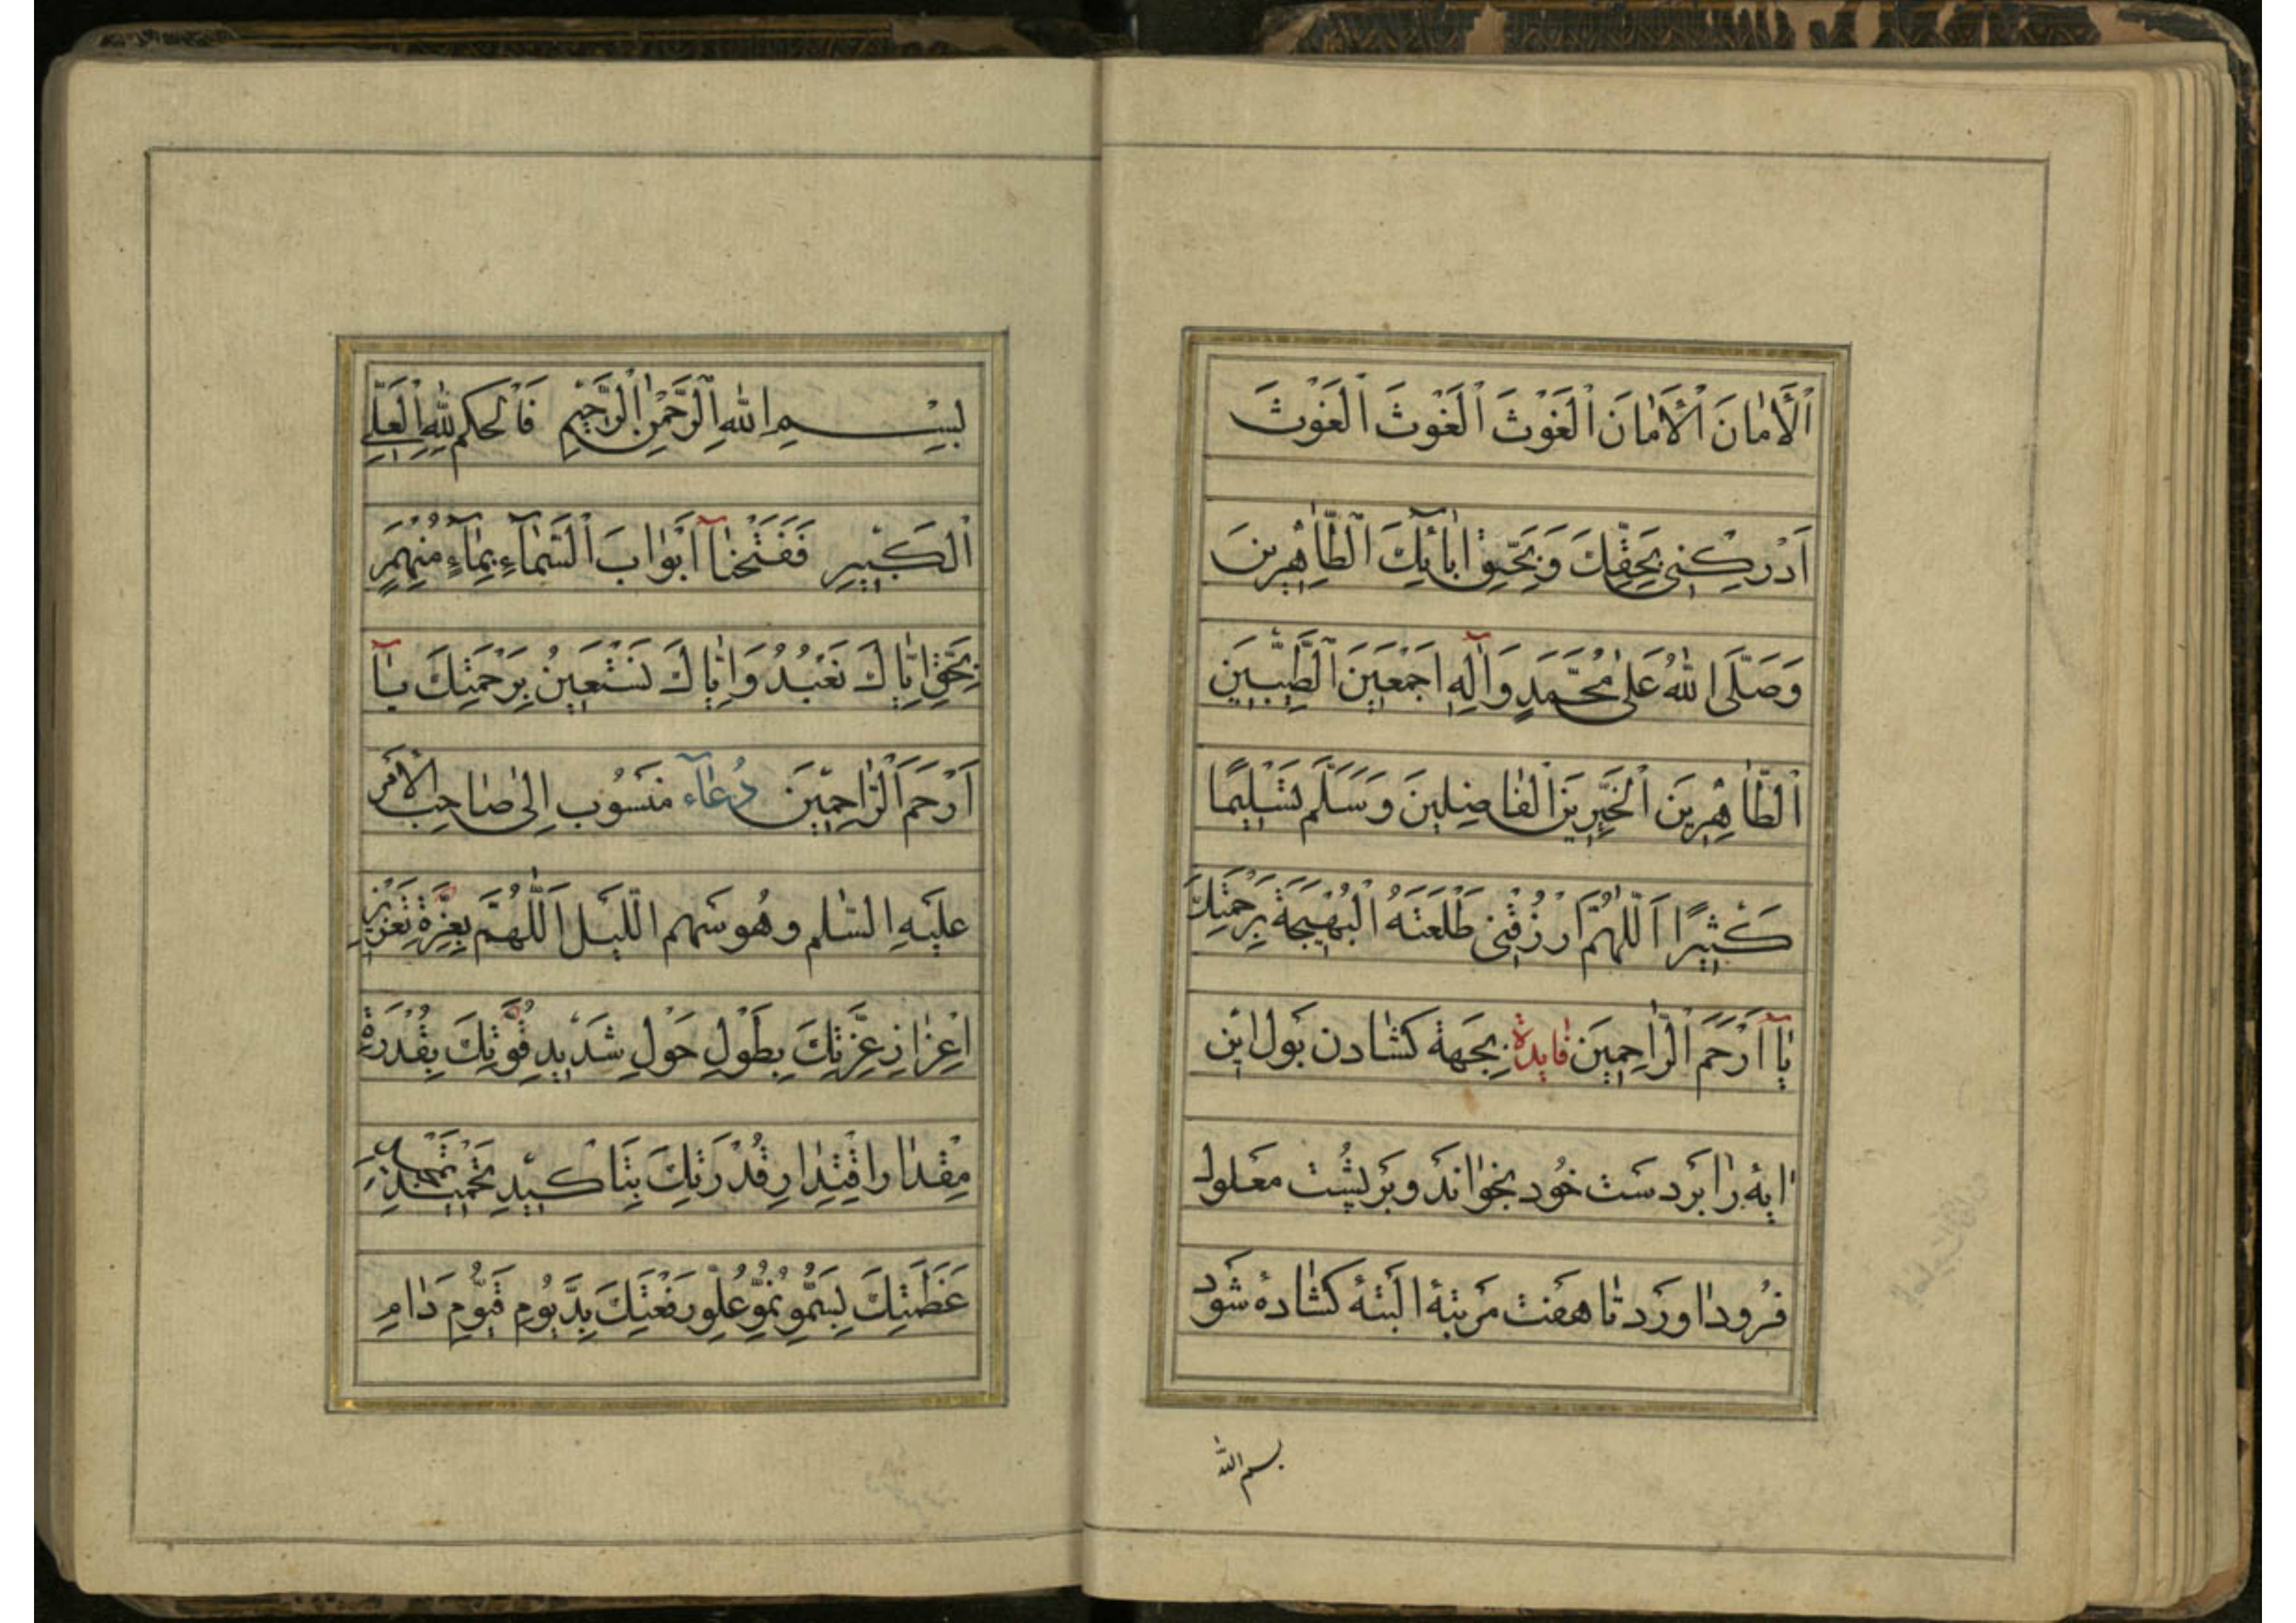 اَلْأَمٰانَ اَلْأَمٰانَ اَلْغَوْثَ اَلْغَوْثَ اَلْغَوْثَ
اَدْرِكْنِي بِحَقِّكَ وَبِحَقِّ اٰبٰائِكَ الطّٰاهِرِينَ
وَصَلَّى اللّٰهُ عَلىٰ مُحَمَّدٍ وَآلِهِ اَجْمَعِينَ الطَّيِّبِينَ
الطّٰاهِرِينَ الْخَيِّرِينَ الْفٰاضِلِينَ وَسَلَّمَ تَسْلِيمًا
كَثِيرًا اَللّٰهُمَّ ارْزُقْنِي طَلْعَتَهُ الْبَهِيجَةَ بِرَحْمَتِكَ
يٰآ اَرْحَمَ الرّٰاحِمِينَ فٰايدة بجهة كشادن بول اين
ايه را بر دست خود بخواند و بر پشت معلول
فرود اورد تا هفت مرتبه البته كشاده شود
بسم الله
بِسْمِ اللّٰهِ الرَّحْمٰنِ الرَّحِيمِ فَالْحُكْمُ لِلّٰهِ الْعَلِيِّ
الْكَبِيرِ فَفَتَحْنٰآ اَبْوٰابَ السَّمٰآءِ بِمٰآءٍ مُنْهَمِرٍ
بِحَقِّ اِيّٰاكَ نَعْبُدُ وَاِيّٰاكَ نَسْتَعِينُ بِرَحْمَتِكَ يٰآ
اَرْحَمَ الرّٰاحِمِينَ دُعٰآء منسُوب اِلىٰ صٰاحِب الاَمر
عليَهِ السّلم و هُو سَهم اللّيل اَللّٰهُمَّ بِعِزَّةِ تَعْزِيزِ
اِعْزٰازِ عِزَّتِكَ بِطَوْلِ حَوْلِ شَدِيدِ قُوَّتِكَ بِقُدْرَةِ
مِقْدٰارِ اقْتِدٰارِ قُدْرَتِكَ بِتَاكِيدِ تَحْمِيدِ تَمْجِيدِ
عَظَمَتِكَ بِسُمُوِّ نُمُوِّ عُلُوِّ رَفْعَتِكَ بِدَيُّومِ قَيُّومِ دَوٰامِ